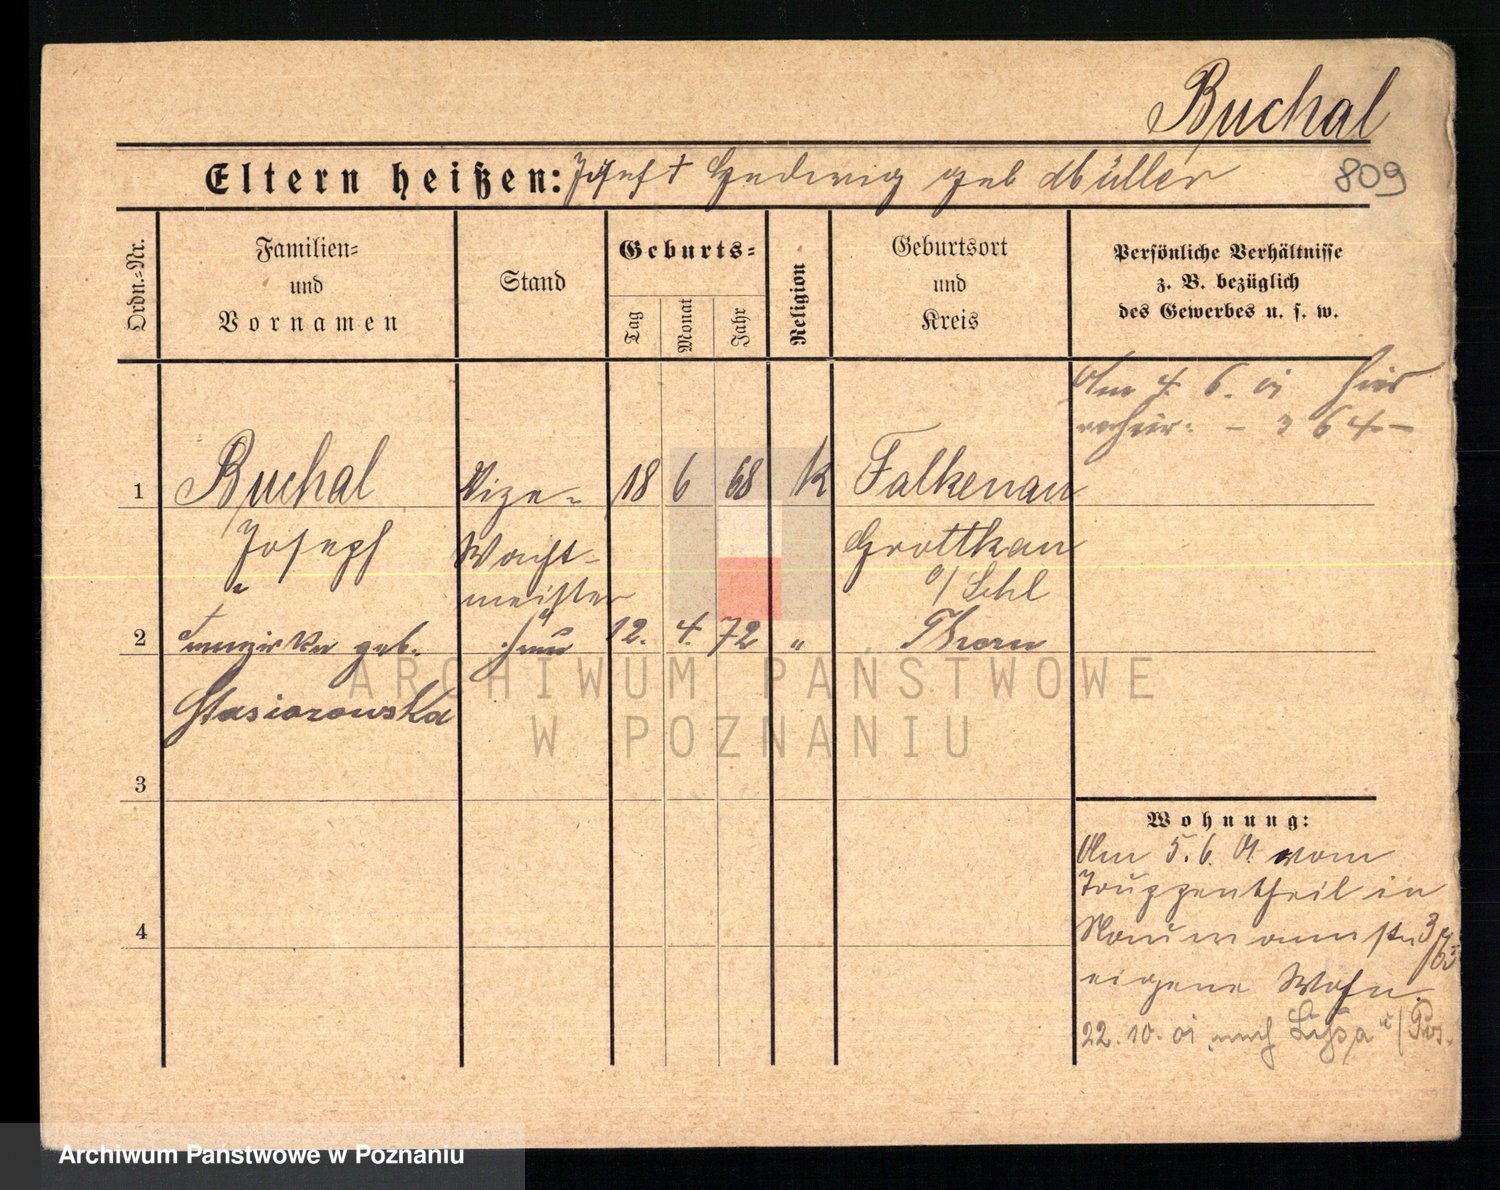 Buchal
Eltern heißen: Josef † Hedwig geb Müller
809
Ordn.-Nr.
Familien-
und
Vornamen
Stand
Geburts-
Tag
Monat
Jahr
Religion
Geburtsort
und
Kreis
Persönliche Verhältnisse
z. B. bezüglich
des Gewerbes u. s. w.
Am 4. 6. 01 hier
verheir. - 364 -
1 Buchal Vize- 18 6 68 k Falkenau
Joseph Wacht- Grottkau
meister o/ Schl
2 Franziska geb. frau 12. 4. 72 " Thorn
Stasiorowska
3
4
Wohnung:
Am 5. 6. 01 vom
Truppentheil in
Naumannstr 3
eigene Wohn.
22. 10. 01 nach Lissa i/ Pos.
ARCHIWUM PAŃSTWOWE
W POZNANIU
Archiwum Państwowe w Poznaniu